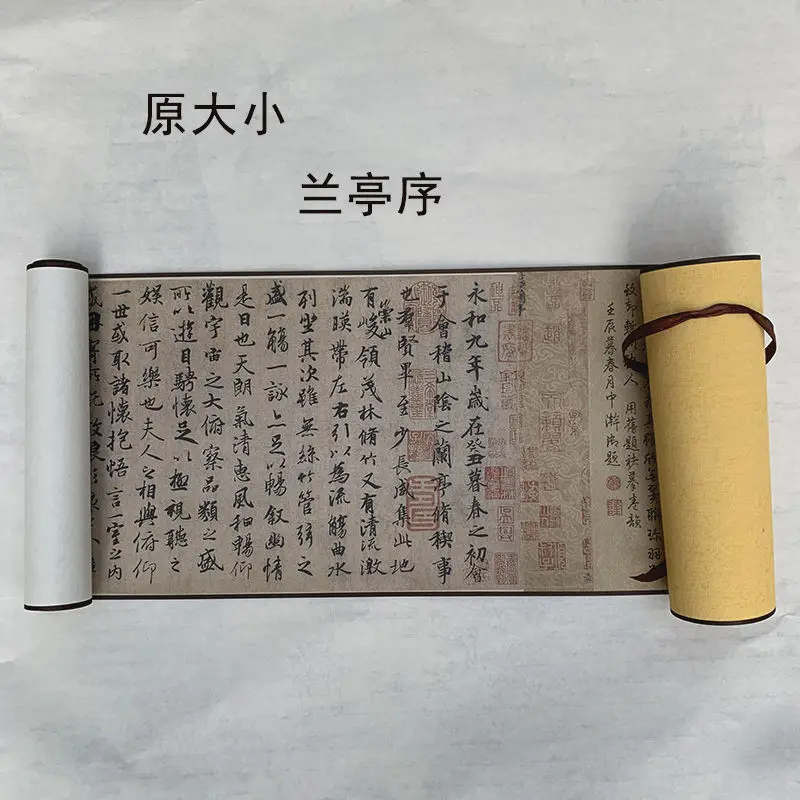 原大小
兰亭序
用舊題
韻
壬辰暮春月中澣御題
永和九年歲在癸丑暮春之初會
于會稽山陰之蘭亭脩稧事
也羣賢畢至少長咸集此地
有崇山峻領茂林脩竹又有清流激
湍暎帶左右引以為流觴曲水
列坐其次雖無絲竹管弦之
盛一觴一詠亦足以暢敘幽情
是日也天朗氣清惠風和暢仰
觀宇宙之大俯察品類之盛
所以遊目騁懷足以極視聽之
娛信可樂也夫人之相與俯仰
一世或取諸懷抱悟言一室之內